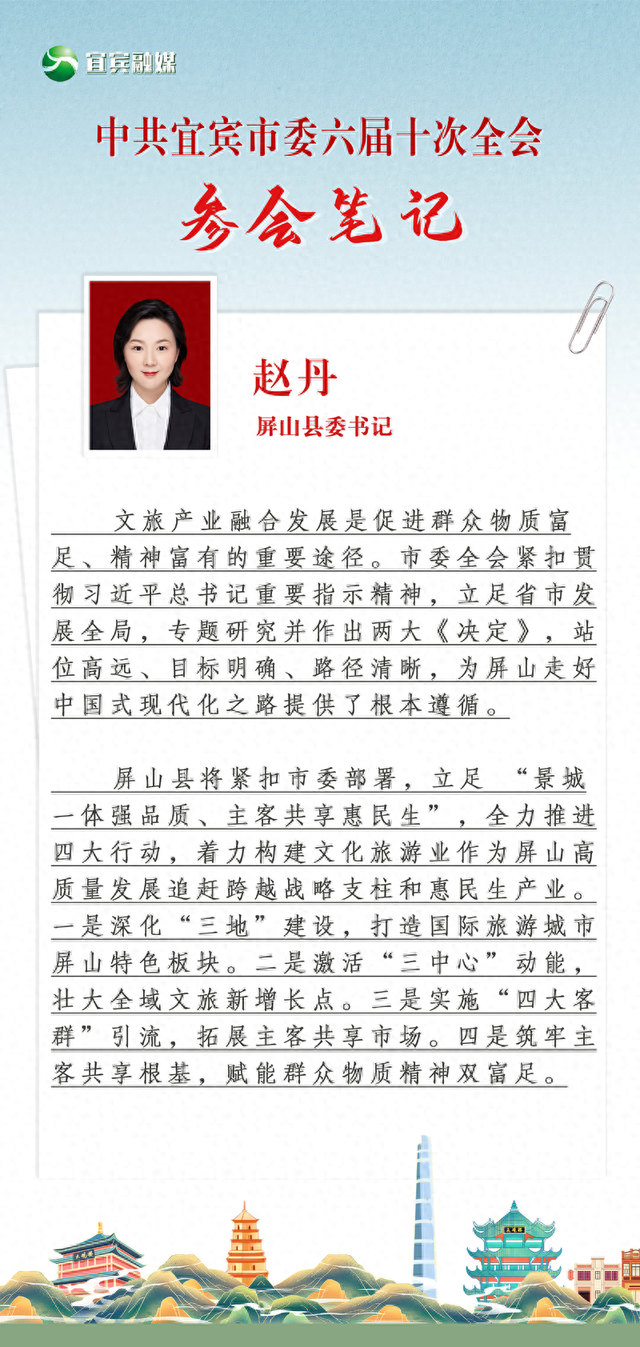 宜宾融媒
中共宜宾市委六届十次全会
参会笔记
赵丹
屏山县委书记
文旅产业融合发展是促进群众物质富
足、精神富有的重要途径。市委全会紧扣贯
彻习近平总书记重要指示精神，立足省市发
展全局，专题研究并作出两大《决定》，站
位高远、目标明确、路径清晰，为屏山走好
中国式现代化之路提供了根本遵循。
屏山县将紧扣市委部署，立足“景城
一体强品质、主客共享惠民生”，全力推进
四大行动，着力构建文化旅游业作为屏山高
质量发展追赶跨越战略支柱和惠民生产业。
一是深化“三地”建设，打造国际旅游城市
屏山特色板块。二是激活“三中心”动能，
壮大全域文旅新增长点。三是实施“四大客
群”引流，拓展主客共享市场。四是筑牢主
客共享根基，赋能群众物质精神双富足。